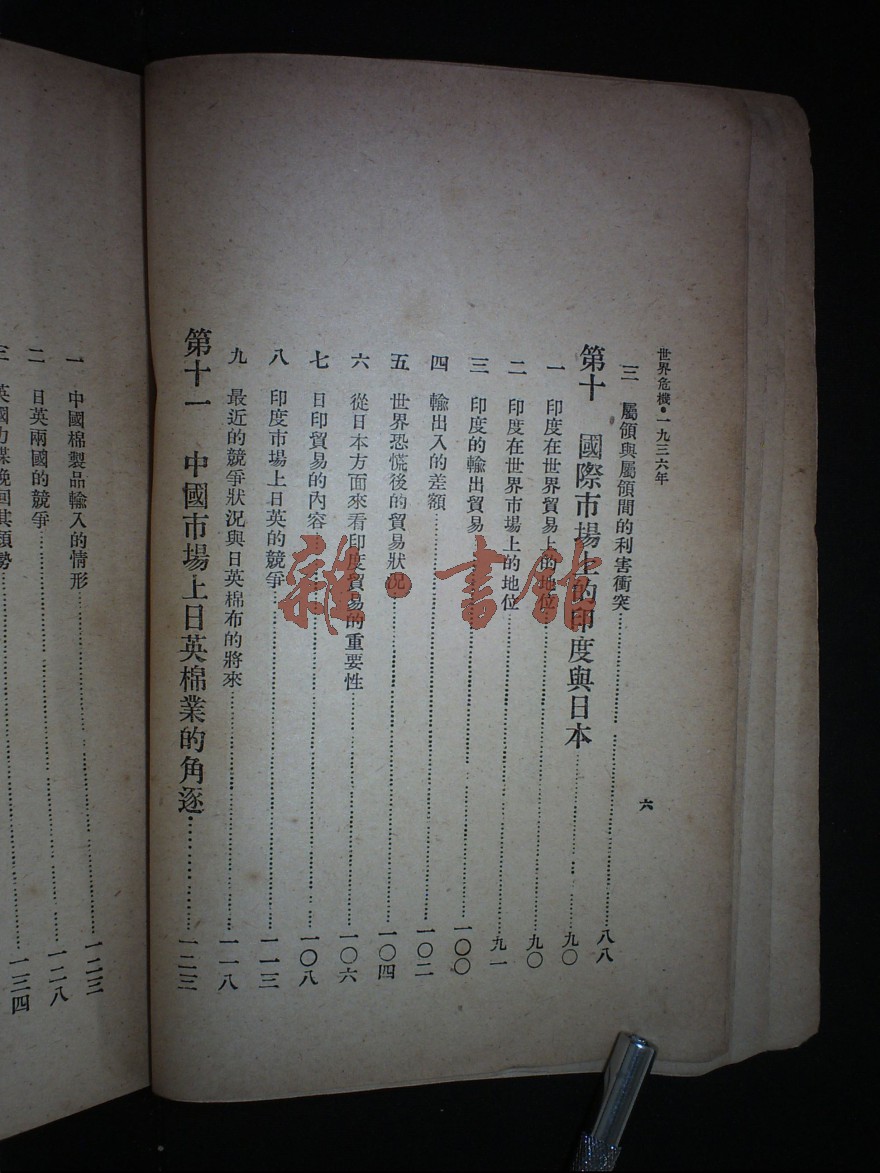 世界危機·一九三六年
六
三 屬領與屬領間的利害衝突 八八
第十 國際市場上的印度與日本 九〇
一 印度在世界貿易上的地位 九〇
二 印度在世界市場上的地位 九一
三 印度的輸出貿易 一〇〇
四 輸出入的差額 一〇二
五 世界恐慌後的貿易狀況 一〇四
六 從日本方面來看印度貿易的重要性 一〇六
七 日印貿易的內容 一〇八
八 印度市場上日英的競爭 一一三
九 最近的競爭狀況與日英棉布的將來 一一八
第十一 中國市場上日英棉業的角逐 一二三
一 中國棉製品輸入的情形 一二三
二 日英兩國的競爭 一二八
三 英國力謀挽回其頹勢 一三四
雜·書館